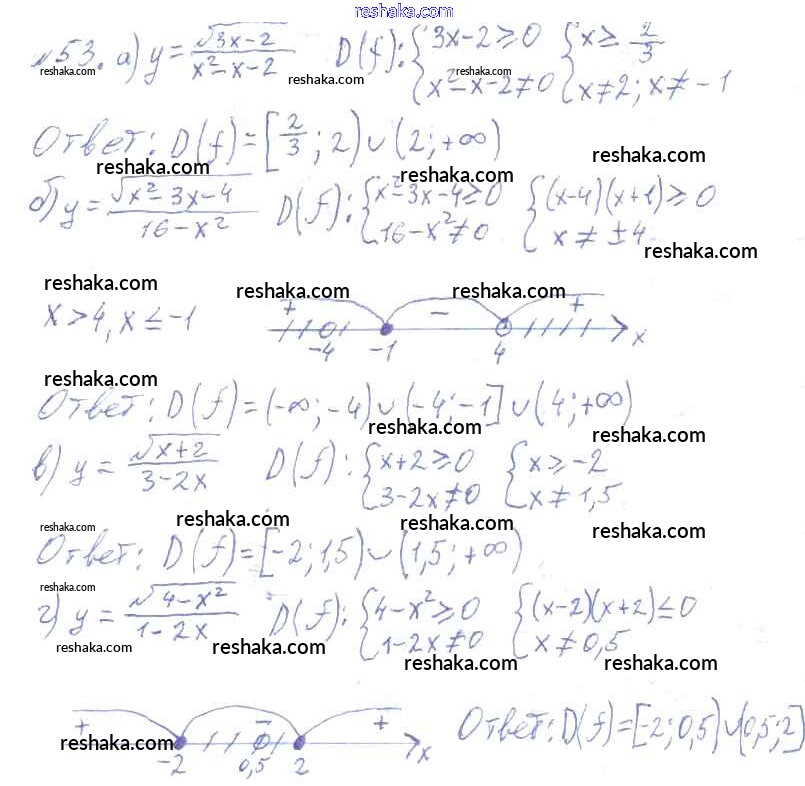 reshaka.com
№53. а) y = √(3x-2) / (x²-x-2) D(f): { 3x-2 ≥ 0 { x ≥ 2/3
x²-x-2 ≠ 0 x ≠ 2; x ≠ -1
reshaka.com reshaka.com reshaka.com reshaka.com
Ответ: D(f) = [2/3; 2) ∪ (2; +∞)
reshaka.com reshaka.com reshaka.com
б) y = √(x²-3x-4) / (16-x²) D(f): { x²-3x-4 ≥ 0 { (x-4)(x+1) ≥ 0
16-x² ≠ 0 x ≠ ±4
reshaka.com
reshaka.com reshaka.com reshaka.com
x > 4, x ≤ -1 + − + x
-4 -1 4
reshaka.com
Ответ: D(f) = (-∞; -4) ∪ (-4; -1] ∪ (4; +∞)
reshaka.com reshaka.com
в) y = √(x+2) / (3-2x) D(f): { x+2 ≥ 0 { x ≥ -2
3-2x ≠ 0 x ≠ 1,5
reshaka.com reshaka.com reshaka.com reshaka.com
Ответ: D(f) = [-2; 1,5) ∪ (1,5; +∞)
reshaka.com reshaka.com reshaka.com
г) y = √(4-x²) / (1-2x) D(f): { 4-x² ≥ 0 { (x-2)(x+2) ≤ 0
1-2x ≠ 0 x ≠ 0,5
reshaka.com reshaka.com reshaka.com reshaka.com
+ − + x
-2 0,5 2
Ответ: D(f) = [-2; 0,5) ∪ (0,5; 2]
reshaka.com reshaka.com reshaka.com